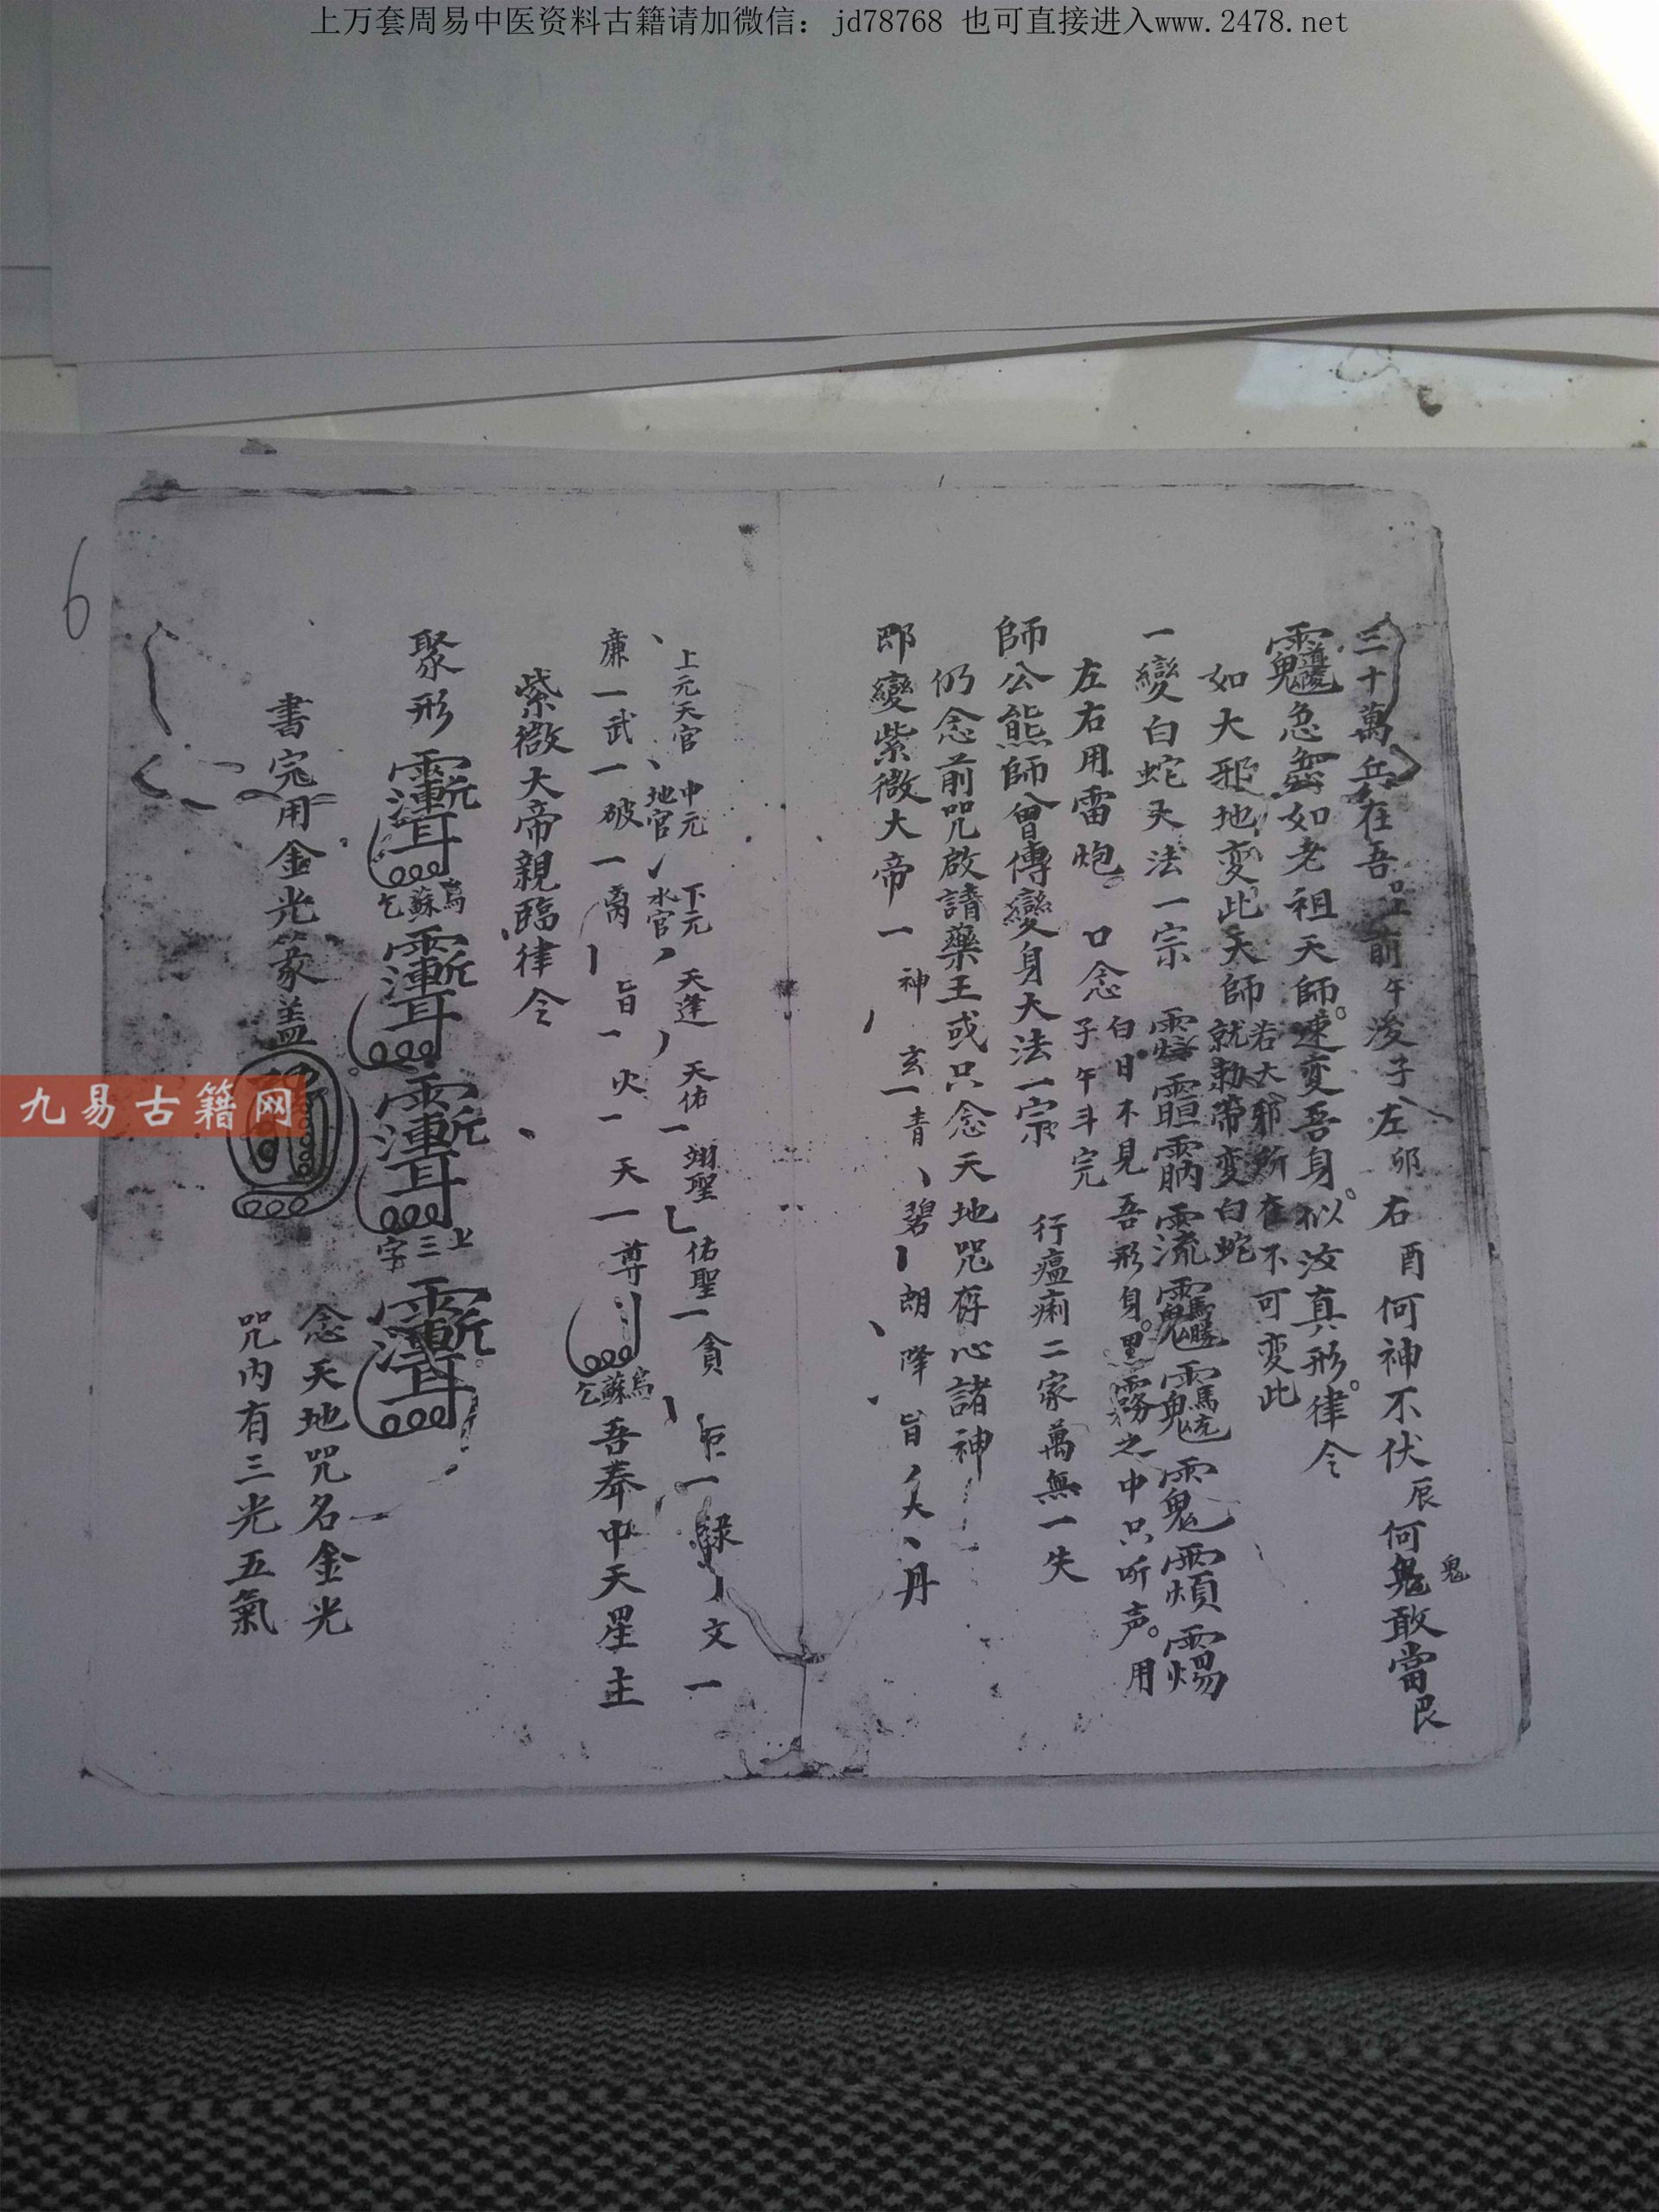 上万套周易中医资料古籍请加微信：jd78768 也可直接进入www.2478.net
三十萬兵在吾前午後子左卯右酉何神不伏辰何鬼敢當艮
鬼
急急如老祖天師速变吾身似汝真形律令
如大邪地变此天師若大邪所在不可变此
就勅帶变白蛇
一變白蛇天法一宗
左右用雷炮口念白日不見吾形身黑霧之中只听声用
子午斗完
師公熊師曾傳變身大法一宗 行瘟痢二家萬無一失
仍念前咒啟請藥王或只念天地咒存心諸神
即變紫微大帝一神玄一青碧朗降旨大丹
上元天官 中元地官 下元水官 天逢 天佑 翊聖 佑聖 貪 巨 祿 文一
廉一武一破一离 旨一火一天一尊 乞蘇烏 吾奉中天星主
紫微大帝親臨律令
聚形 乞蘇烏 上三字
書完用金光篆盖 念天地咒名金光
咒内有三光五氣
6
九易古籍网